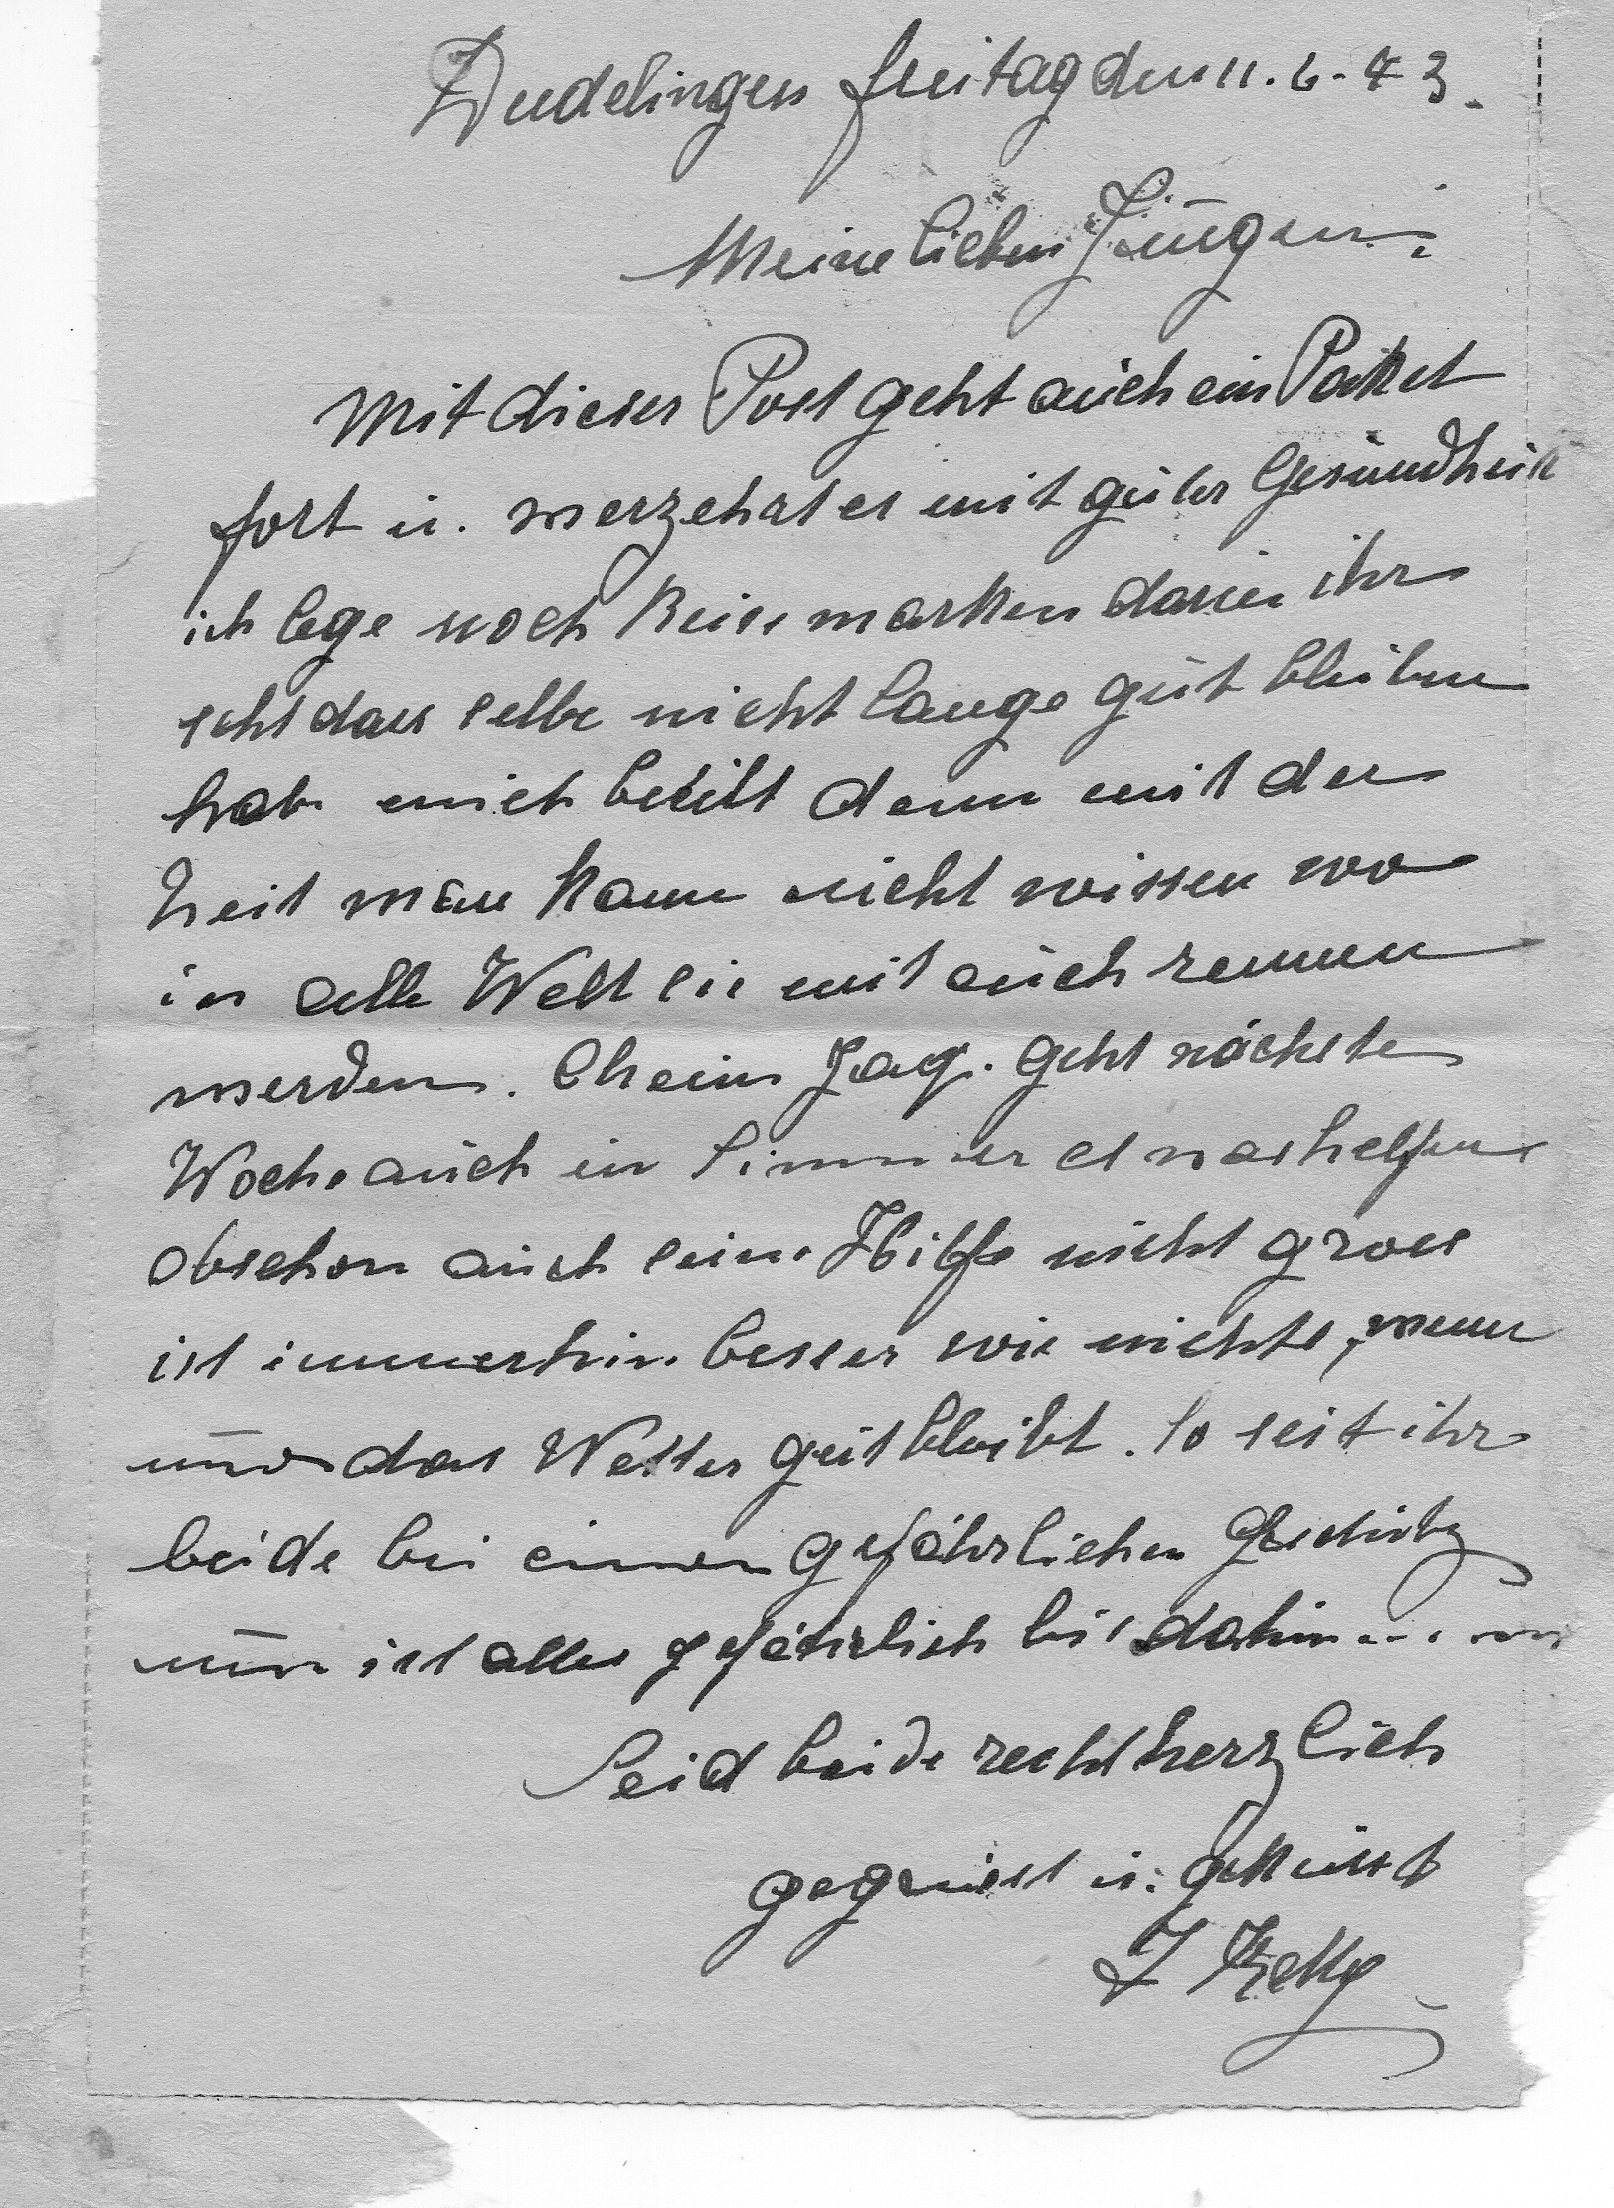 Dudelingen freitag den 11. 6. 43.
Meine lieben Jungen:
Mit dieser Post geht auch ein Packet
fort u. werzehrt es mit guter Gesundheit
ich lege noch Reisemarken darin ihr
seht dass selbe nicht lange gut bleiben
habe mich beeilt denn mit der
Zeit man kann nicht wissen wo
in alle Welt sie mit euch rennen
werden. Jag. geht nächste
Woche auch in Simmer etwas helfen
obschon auch seine Hilfe nicht gross
ist immerhin besser wie nichts, wenn
nur das Wetter gut bleibt. So seit ihr
beide bei einem gefährlichen Geschütz
nun ist alles gefährlich bis dahin
Seid beide recht herzlich
gegrüsst u. geküsst